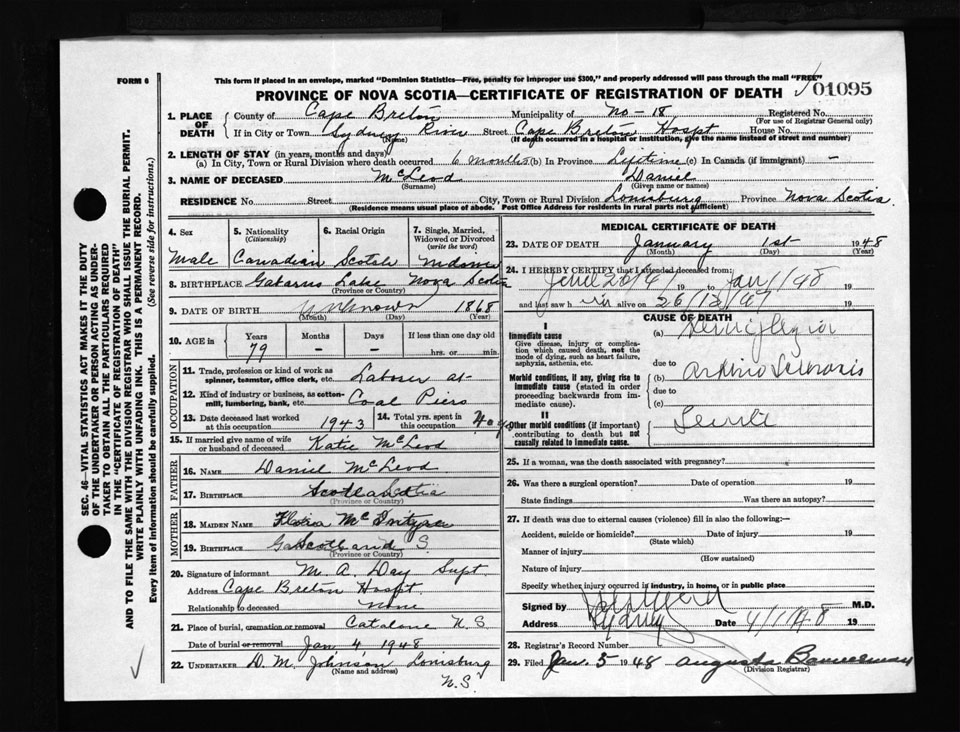 FORM 6
This form if placed in an envelope, marked "Dominion Statistics—Free, penalty for improper use $300," and properly addressed will pass through the mail "FREE"
PROVINCE OF NOVA SCOTIA—CERTIFICATE OF REGISTRATION OF DEATH
01095
SEC. 46—VITAL STATISTICS ACT MAKES IT THE DUTY
OF THE UNDERTAKER OR PERSON ACTING AS UNDER-
TAKER TO OBTAIN ALL THE PARTICULARS REQUIRED
IN THE "CERTIFICATE OF REGISTRATION OF DEATH"
AND TO FILE THE SAME WITH THE DIVISION REGISTRAR WHO SHALL ISSUE THE BURIAL PERMIT.
WRITE PLAINLY WITH UNFADING INK. THIS IS A PERMANENT RECORD.
Every item of information should be carefully supplied. (See reverse side for instructions.)
1. PLACE OF DEATH County of Cape Breton Municipality of No-18 Registered No.
(For use of Registrar General only)
If in City or Town Sydney River Street Cape Breton Hospt House No.
(Name) (If death occurred in a hospital or institution, give the name instead of street and number)
2. LENGTH OF STAY (in years, months and days)
(a) In City, Town or Rural Division where death occurred 6 months (b) In Province Lifetime (c) In Canada (if immigrant) -
3. NAME OF DECEASED McLeod Daniel
(Surname) (Given name or names)
RESIDENCE No. Street City, Town or Rural Division Louisburg Province Nova Scotia
(Residence means usual place of abode. Post Office Address for residents in rural parts not sufficient)
4. Sex 5. Nationality (Citizenship) 6. Racial Origin 7. Single, Married, Widowed or Divorced (write the word)
Male Canadian Scotch
8. BIRTHPLACE Gabarus Lake Nova Scotia
(Province or Country)
9. DATE OF BIRTH Unknown 1868
(Month) (Day) (Year)
10. AGE in Years Months Days If less than one day old
79 - - hrs. or min.
OCCUPATION
11. Trade, profession or kind of work as spinner, teamster, office clerk, etc. Laborer at
12. Kind of industry or business, as cotton-mill, lumbering, bank, etc. Coal Piers
13. Date deceased last worked at this occupation 1943 14. Total yrs. spent in this occupation
15. If married give name of wife or husband of deceased Katie McLeod
FATHER
16. NAME Daniel McLeod
17. BIRTHPLACE
(Province or Country)
MOTHER
18. MAIDEN NAME Flora McIntyre
19. BIRTHPLACE Scotland
(Province or Country)
20. Signature of informant M. A. Day Supt.
Address Cape Breton Hospt.
Relationship to deceased none
21. Place of burial, cremation or removal Catalone N. S
Date of burial or removal Jan, 4 1948
22. UNDERTAKER D. M. Johnson Louisburg
(Name and address)
N. S.
MEDICAL CERTIFICATE OF DEATH
23. DATE OF DEATH January 1st 1948
(Month) (Day) (Year)
24. I HEREBY CERTIFY that I attended deceased from:
June 19 to Jan 1/48 19
and last saw him alive on 26/12/47 19
CAUSE OF DEATH
I
Immediate cause
Give disease, injury or complication which caused death, not the mode of dying, such as heart failure, asphyxia, asthenia, etc.
(a) Hemiplegia
due to
Morbid conditions, if any, giving rise to immediate cause (stated in order proceeding backwards from immediate cause).
(b)
due to
(c)
II
Other morbid conditions (if important) contributing to death but not causally related to immediate cause.
Senile
25. If a woman, was the death associated with pregnancy?
26. Was there a surgical operation? Date of operation 19
State findings Was there an autopsy?
27. If death was due to external causes (violence) fill in also the following:—
Accident, suicide or homicide? Date of injury 19
(State which)
Manner of injury
(How sustained)
Nature of injury
Specify whether injury occurred in industry, in home, or in public place
Signed by M.D.
Address Sydney Date 4/1/48 19
28. Registrar's Record Number
29. Filed Jan. 5 1948 Augusta Bannerman
(Division Registrar)